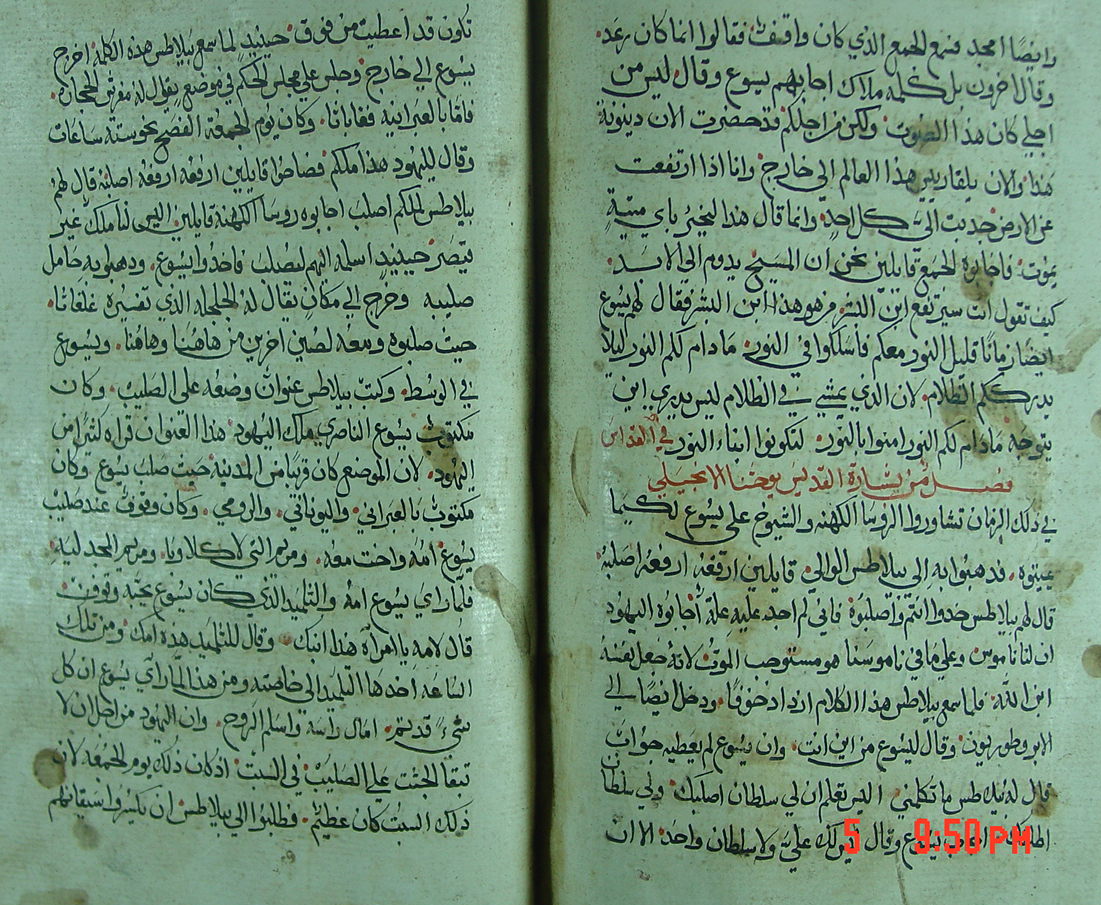 وايضًا امجد فسمع الجمع الذي كان واقفٌ فقالوا انما كان رعد.
وقال اخرون بل كلمه ملاك اجابهم يسوع وقال ليس من
اجلي كان هذا الصوت ولكن من اجلكم قد حضرت الان دينونة
هذا والان يلقا رييس هذا العالم الي خارج وانا اذا ارتفعت
عن الارض جدبت الي كل احد وانما قال هذا ليخبر باي ميتةٍ
يموت فاجابوه الجمع قايلين نحن ان المسيح يدوم الي الابد
كيف تقول انت سيرتفع ابن البشر من هو هذا ابن البشر فقال لهم يسوع
ايضًا زمانًا قليل النور معكم فاسلكوا في النور ما دام لكم النور ليلا
يدرككم الظلام لان الذي يمشي في الظلام ليس يدري اين
يتوجه ما دام لكم النور امنوا بالنور لتكونوا ابناء النور في القداس
فصل من بشارة القديس يوحنا الانجيلي
في ذلك الزمان تشاوروا الروسا الكهنه والشيوخ علي يسوع لكيما
يميتوه فدهبوا به الي بيلاطس الوالي قايلين ارفعهُ ارفعهُ اصلبهُ
قال لهم بيلاطس خدوه انتم واصلبوه فاني لم اجد عليه علةً اجابوه اليهود
ان لنا ناموس وعلي ما في ناموسنا هو مستوجب الموت لانه جعل نفسه
ابن الله فلما سمع بيلاطس هذا الكلام ازداد خوفًا ودخل ايضًا الي
الابروطوريون وقال ليسوع من اين انت وان يسوع لم يعطيه جوابٌ
قال له بيلاطس ما تكلمني اليس تعلم ان لي سلطان اصلبك ولي سلطان
اطلقك اجاب يسوع وقال ليس لك علي ولا سلطان واحد الا ان
5 9:50 PM
تكون قد اعطيت من فوق حينيدٍ لما سمع بيلاطس هذه الكلمه اخرج
يسوع الي خارج وجلس علي مجلس الحكم في موضعٍ يقول له مفرش الحجاره
فاما بالعبرانيه فغاباثا وكان يوم الجمعة الفصح نحو ستة ساعات
وقال لليهود هذا ملككم فصاحوا قايلين ارفعه ارفعه اصلبه قال لهم
بيلاطس لملككم اصلب اجابوه روسا الكهنة قايلين اليس لنا ملك غير
قيصر حينيدٍ اسلمه اليهم ليصلب فاخدوا يسوع ودهبوا به حامل
صليبه وخرج الي مكانٍ يقال له الجلجله الذي تفسيره غلغاثا
حيث صلبوه ومعه لصين اخرين من هاهنا وهاهنا ويسوع
في الوسط وكتب بيلاطس عنوان وضعه علي الصليب وكان
مكتوبٌ يسوع الناصري ملك اليهود هذا العنوان قراه كثيرًا من
اليهود لان الموضع كان قريبًا من المدينة حيث صلب يسوع وكان
مكتوبٌ بالعبراني واليوناني والرومي وكان وقوف عند صليب
يسوع امه واخت امه ومريم التي لاكلاوبا ومريم المجدليه
فلما راي يسوع امه والتلميد الذي كان يسوع يحبه وقوف
قال لامه يا امراة هدا ابنك وقال للتلميد هده امك ومن تلك
الساعه اخدها التلميد الي خاصته ومن هذا لما راي يسوع ان كل
شيءٍ قد تم امال راسه واسلم الروح وان اليهود من اجل ان لا
تبقا الجثت علي الصليب في السبت اذ كان ذلك يوم الجمعه لان
ذلك السبت كان عظيم فطلبوا الي بيلاطس ان يكسروا سيقانهم